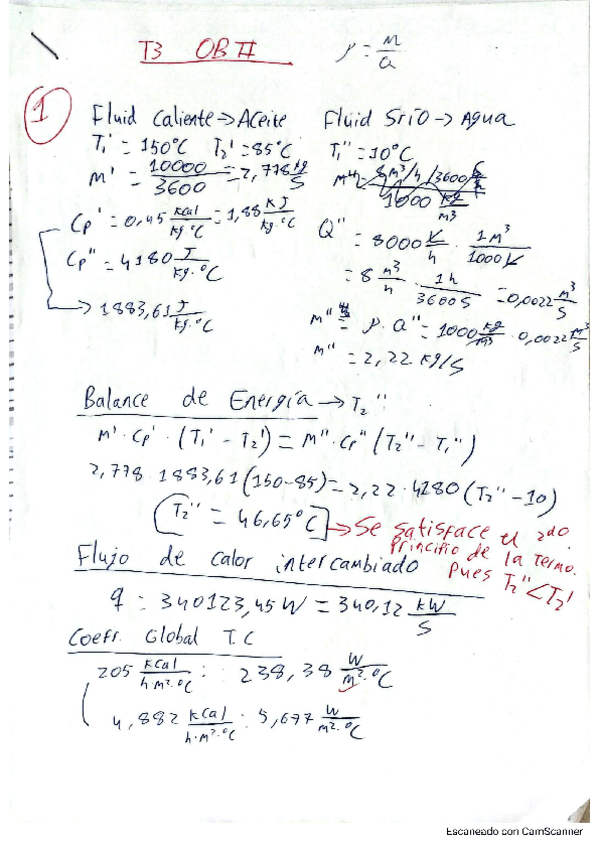 T3 OB II
ρ = m/Q
1
Fluid caliente → Aceite
T₁' = 150°C T₂' = 85°C
m' = 10000/3600 = 2,778 kg/s
Cp' = 0,45 kcal/kg·°C = 1,88 kJ/kg·°C
Cp'' = 4180 J/kg·°C
→ 1883,61 J/kg·°C
Fluid Srio → Agua
T₁'' = 10°C
1000 kg/m³
Q'' = 8000 l/h · 1m³/1000 l
= 8 m³/h · 1h/3600s = 0,0022 m³/s
m'' = ρ · Q'' = 1000 kg/m³ · 0,0022 m³/s
m'' = 2,22 kg/s
Balance de Energía → T₂''
m' · Cp' · (T₁' - T₂') = m'' · Cp'' (T₂'' - T₁'')
2,778 · 1883,61 (150-85) = 2,22 · 4180 (T₂'' - 10)
T₂'' = 46,65°C → Se satisface el 2do
Principio de la Termo.
pues T₂'' < T₂'
Flujo de calor intercambiado
q = 340123,45 W = 340,12 kW/s
Coefr. Global T.C
205 kcal/h·m²·°C : 238,38 W/m²·°C
4,882 kcal/h·m²·°C : 5,677 W/m²·°C
Escaneado con CamScanner